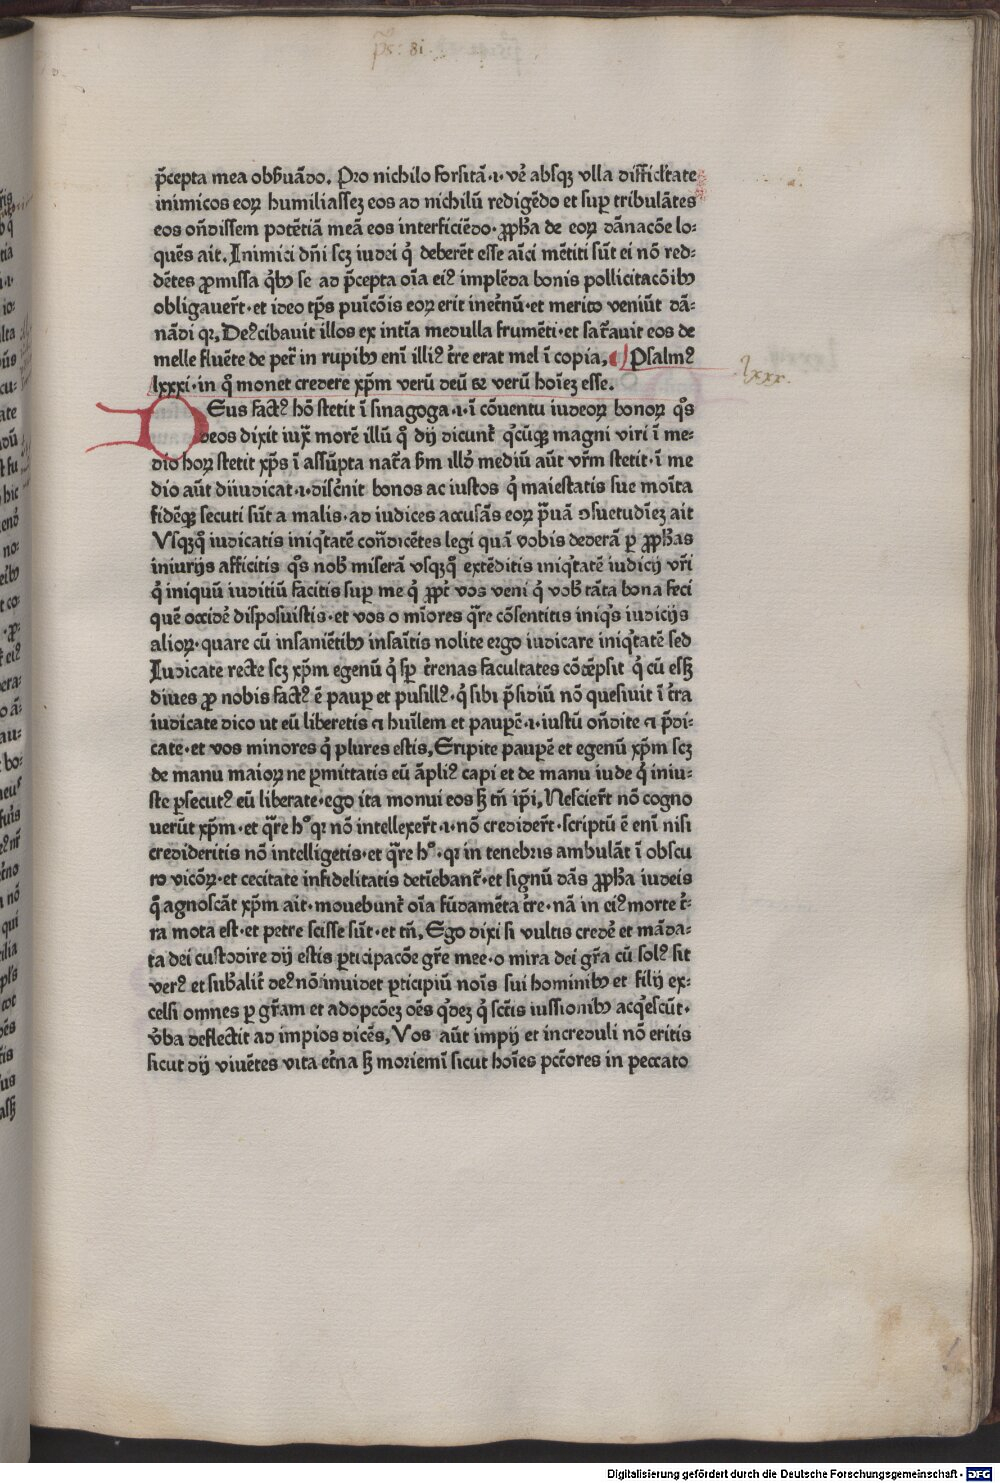 ps: 81
p̃cepta mea obẜuãdo. Pro nichilo forsitã·ı· vel̕ absqʒ vlla difficl̕tate
inimicos eoꝝ humiliasseʒ eos ad nichilũ redigẽdo et suꝑ tribulãtes
eos oñdissem potẽtiã meã eos interficiẽdo· ꝓp̃ha de eoꝝ dãnacõe lo⸗
quẽs ait. Inimici dñi scʒ iudei q̕ deberẽt esse aĩci mẽtiti sũt ei nõ red⸗
dẽtes ꝓmissa q̕bꝰ se ad p̃cepta oĩa eiꝰ implẽda bonis pollicitacõibꝰ
obligauer̃t· et ideo tp̃s puĩcõis eoꝝ erit inet̕nũ· et merito veniũt dã⸗
nãdi qꝛ, Deꝰcibauit illos ex intĩa medulla frumẽti· et sat̕auit eos de
melle fluẽte de pet̕ in rupibꝰ enĩ illiꝰ t̕re erat mel ĩ copia, Psalmꝰ
lxxxi· in q̊ monet credere xp̃m verũ deũ ⁊ verũ hoĩeʒ esse.
lxxx.
DEus fact̕ꝰ hõ stetit ĩ sinagoga·ı· ĩ cõuentu iudeoꝝ bonoꝝ q̊s
deos dixit iux̕ morẽ illũ q̊ dij dicunt̕ q̕cũqʒ magni viri ĩ me⸗
dio hoꝝ stetit xp̃s ĩ assũpta nat̕a ẜm illd̕ mediũ aũt vr̃m stetit· ĩ me
dio aũt diiudicat·ı· disc̕nit bonos ac iustos q̕ maiestatis sue moĩta
fidẽqʒ secuti sũt a malis· ad iudices accusãs eoꝝ p̃uã ↄsuetudĩeʒ ait
Vsqʒq̊ iudicatis iniq̕tatẽ coñdicẽtes legi quã vobis dederã ꝑ ꝓp̃has
iniurijs afficitis q̊s nob̕ miserã vsqʒq̊ extẽditis iniq̕tatẽ iudicij vr̃i
q̕ iniquũ iuditiũ facitis suꝑ me q̕ ꝓpt̕ vos veni q̕ vob̕ tãta bona feci
quẽ occidẽ disposuistis· et vos o mĩores q̃re cõsentitis iniq̕s iudicijs
alioꝝ· quare cũ insaniẽtibꝰ insaĩtis nolite ergo iudicare iniq̕tatẽ sed
Iudicate recte scʒ xp̃m egenũ q̕ sꝑ t̕renas facultates cõtẽpsit q̕ cũ esẜ
diues ꝓ nobis fact̕ꝰ ẽ pauꝑ et pusillꝰ· q̕ sibi p̃sidiũ nõ quesiuit ĩ t̕ra
iudicate dico ut eũ liberetis ⁊ huĩlem et pauꝑẽ·ı· iustũ oñdite ⁊ p̃di⸗
cate· et vos minores q̕ plures estis, Eripite pauꝑẽ et egenũ xp̃m scʒ
de manu maioꝝ ne ꝑmittatis eũ ãpliꝰ capi et de manu iude q̕ iniu⸗
ste ꝑsecutꝰ eũ liberate· ego ita monui eos ẜ tñ ip̃i, Nescier̃t nõ cogno
uerũt xp̃m· et q̃re hº qꝛ nõ intellexer̃t·ı· nõ credider̃t· scriptũ ẽ enĩ nisi
credideritis nõ intelligetis· et q̃re hº· qꝛ in tenebris ambulãt ĩ obscu
ro vicõꝝ· et cecitate infidelitatis detĩebant̕· et signũ dãs ꝓp̃ha iudeis
q̊ agnoscãt xp̃m ait· mouebunt̕ oĩa fũdamẽta t̕re· nã in eiꝰ morte t̕⸗
ra mota est· et petre scisse sũt· et tñ, Ego dixi si vultis cred̕e et mãda⸗
ta dei custodire dij estis ꝑticipacõe gr̃e mee· o mira dei gr̃a cũ solꝰ sit
verꝰ et sub̕alit̕ deꝰ nõ inuidet ꝑticipiũ noĩs sui hominibꝰ et filij ex⸗
celsi omnes ꝑ gr̃am et adopcõeʒ oẽs q̕deʒ q̕ sct̃is iussionibꝰ acq̕escũt·
v̕ba deflectit ad impios dicẽs, Vos aũt impij et increduli nõ eritis
sicut dij viuẽtes vita et̕na ẜ moriemĩ sicut hoĩes pct̃ores in peccato
Digitalisierung gefördert durch die Deutsche Forschungsgemeinschaft - DFG